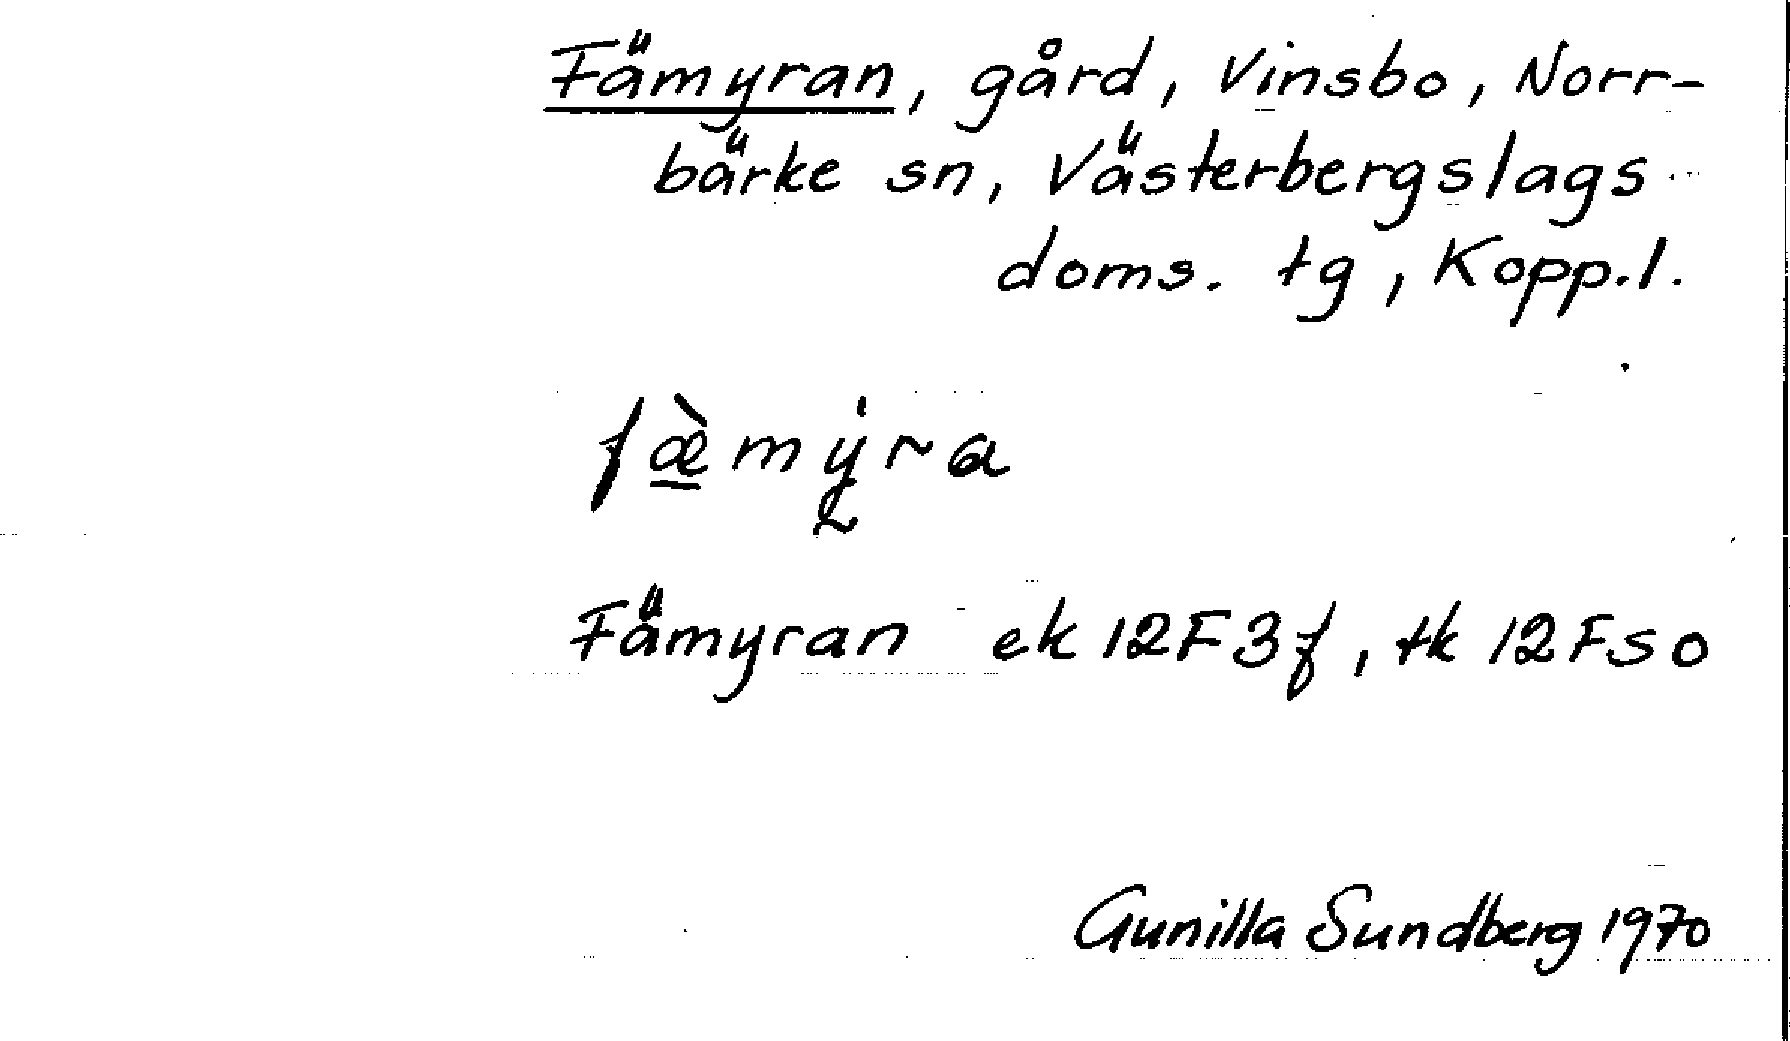 Fämyran, gård, Vinsbo, Norr-
bärke sn, Västerbergslags
doms. tg, Kopp.l.
fæ̠̀my̰̍ra
Fämyran ek 12F3f, tk 12Fso
Gunilla Sundberg 1970